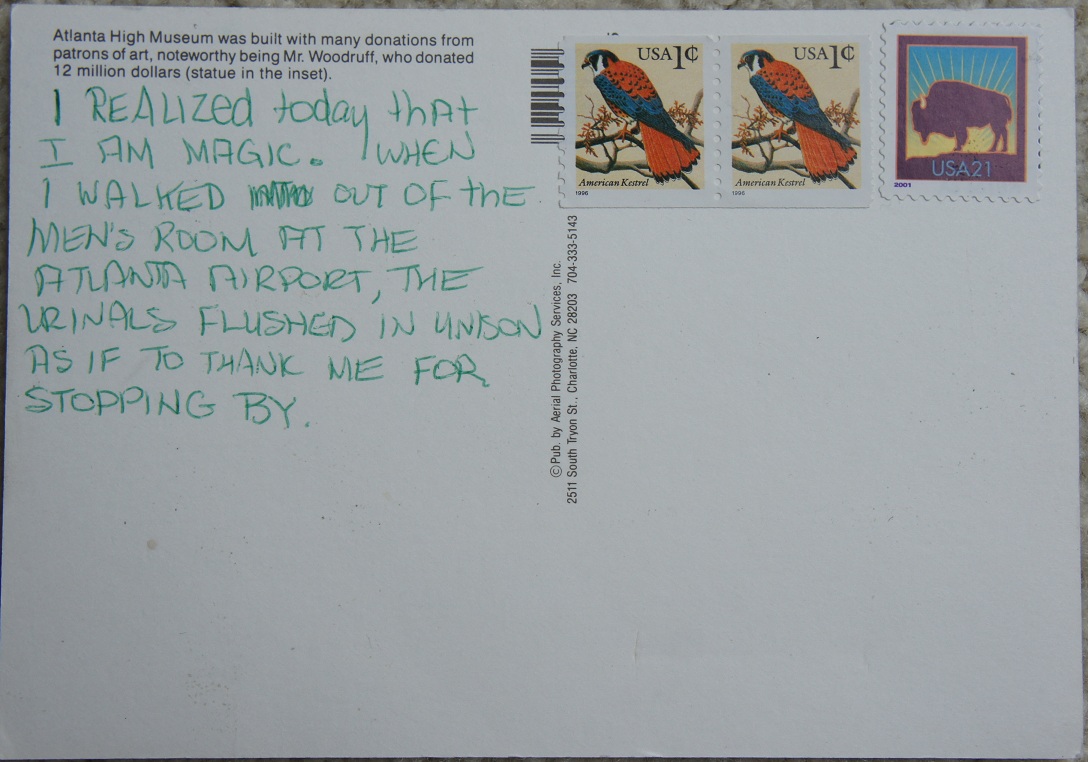 Atlanta High Museum was built with many donations from
patrons of art, noteworthy being Mr. Woodruff, who donated
12 million dollars (statue in the inset).
I REALIZED today that
I AM MAGIC. WHEN
I WALKED OUT OF the
MEN'S ROOM AT THE
ATLANTA AIRPORT, THE
URINALS FLUSHED IN UNISON
AS IF TO THANK ME FOR
STOPPING BY.
USA1¢
American Kestrel
1996
USA1¢
American Kestrel
1996
USA21
2001
©Pub. by Aerial Photography Services, Inc.
2511 South Tryon St., Charlotte, NC 28203 704-333-5143